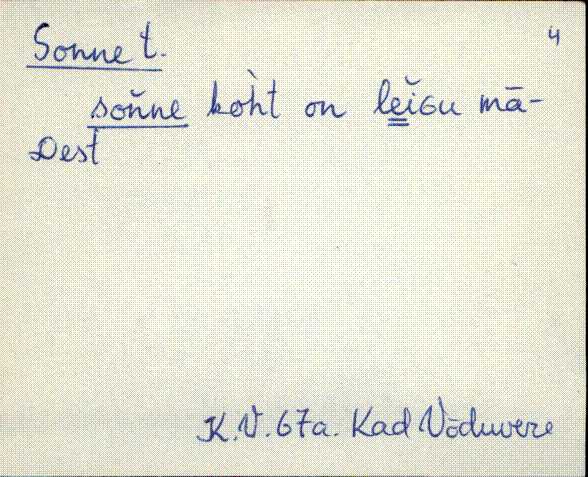 4
Sonne t.
soňne koht on leiGu mā-
Dest
K.V. 67a. Kad Võduvere